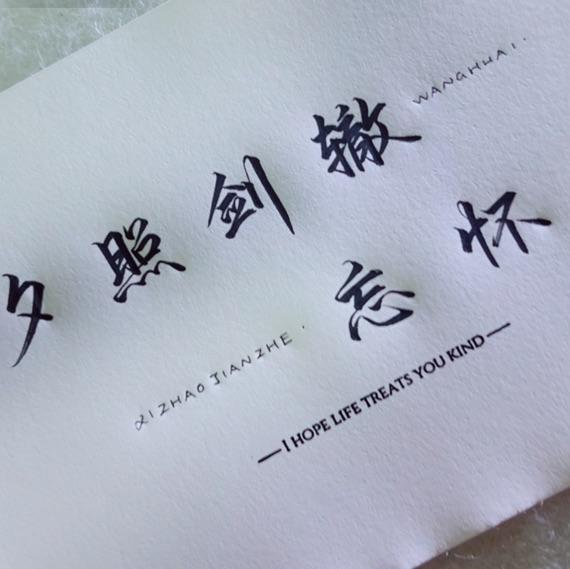 夕照剑辙
WANGHUAI.
忘怀
XIZHAOJIANZHE.
— I HOPE LIFE TREATS YOU KIND —